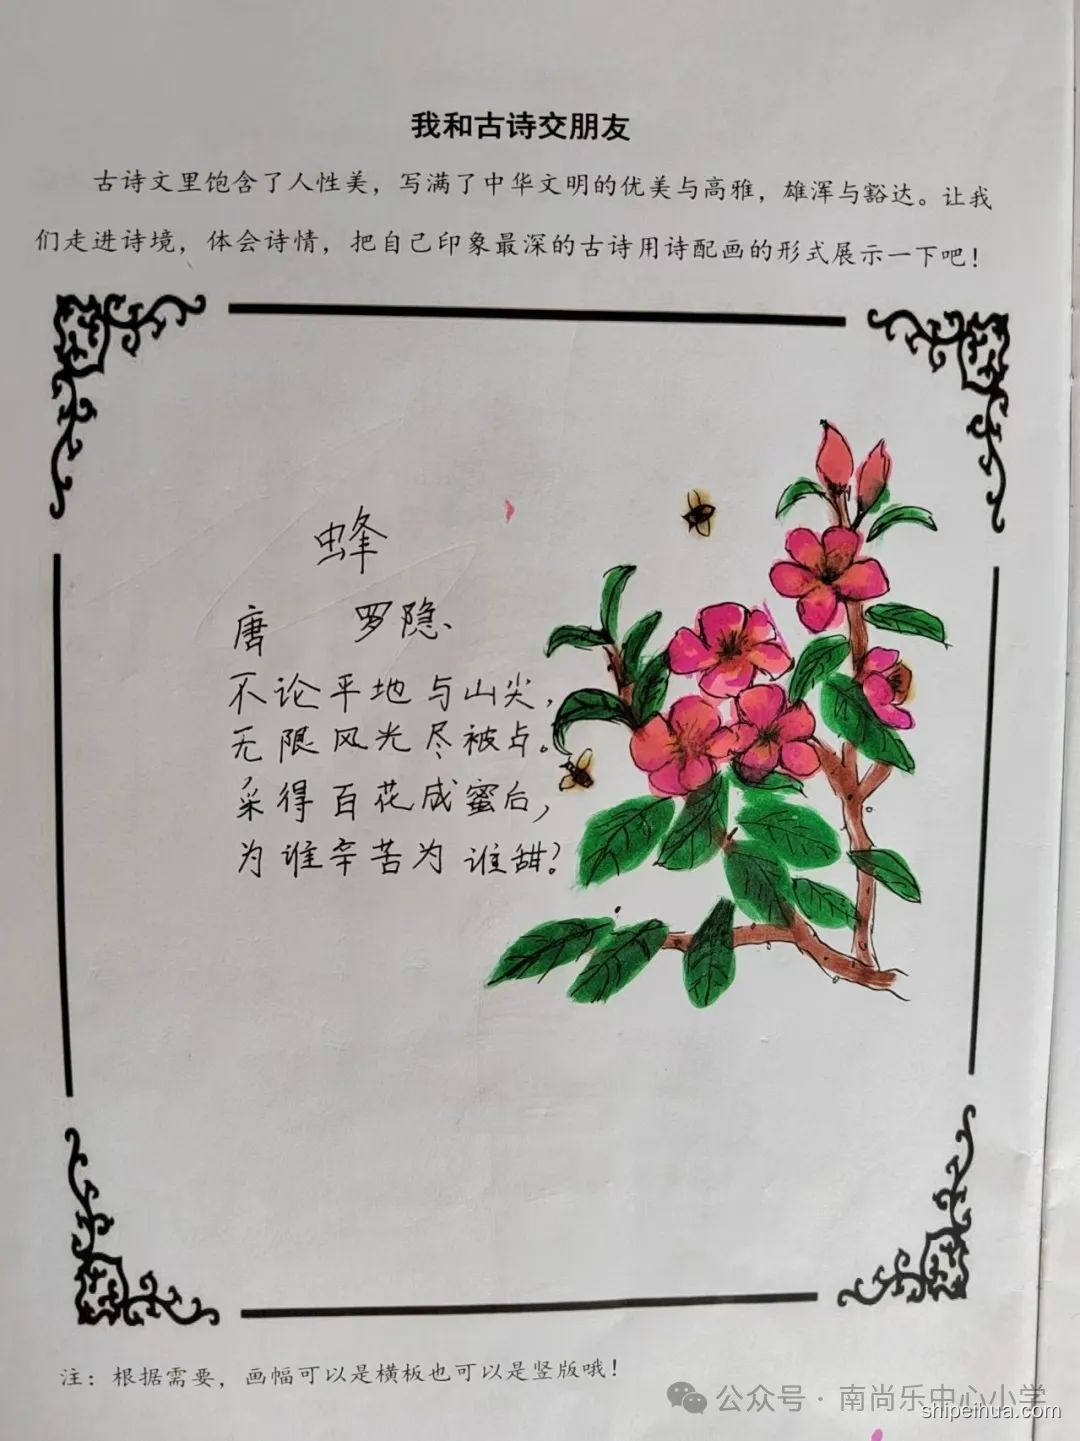 我和古诗交朋友
古诗文里饱含了人性美，写满了中华文明的优美与高雅，雄浑与豁达。让我
们走进诗境，体会诗情，把自己印象最深的古诗用诗配画的形式展示一下吧！
蜂
唐 罗隐、
不论平地与山尖，
无限风光尽被占。
采得百花成蜜后，
为谁辛苦为谁甜？
注：根据需要，画幅可以是横板也可以是竖版哦！
公众号·南尚乐中心小学
shipeihua.com